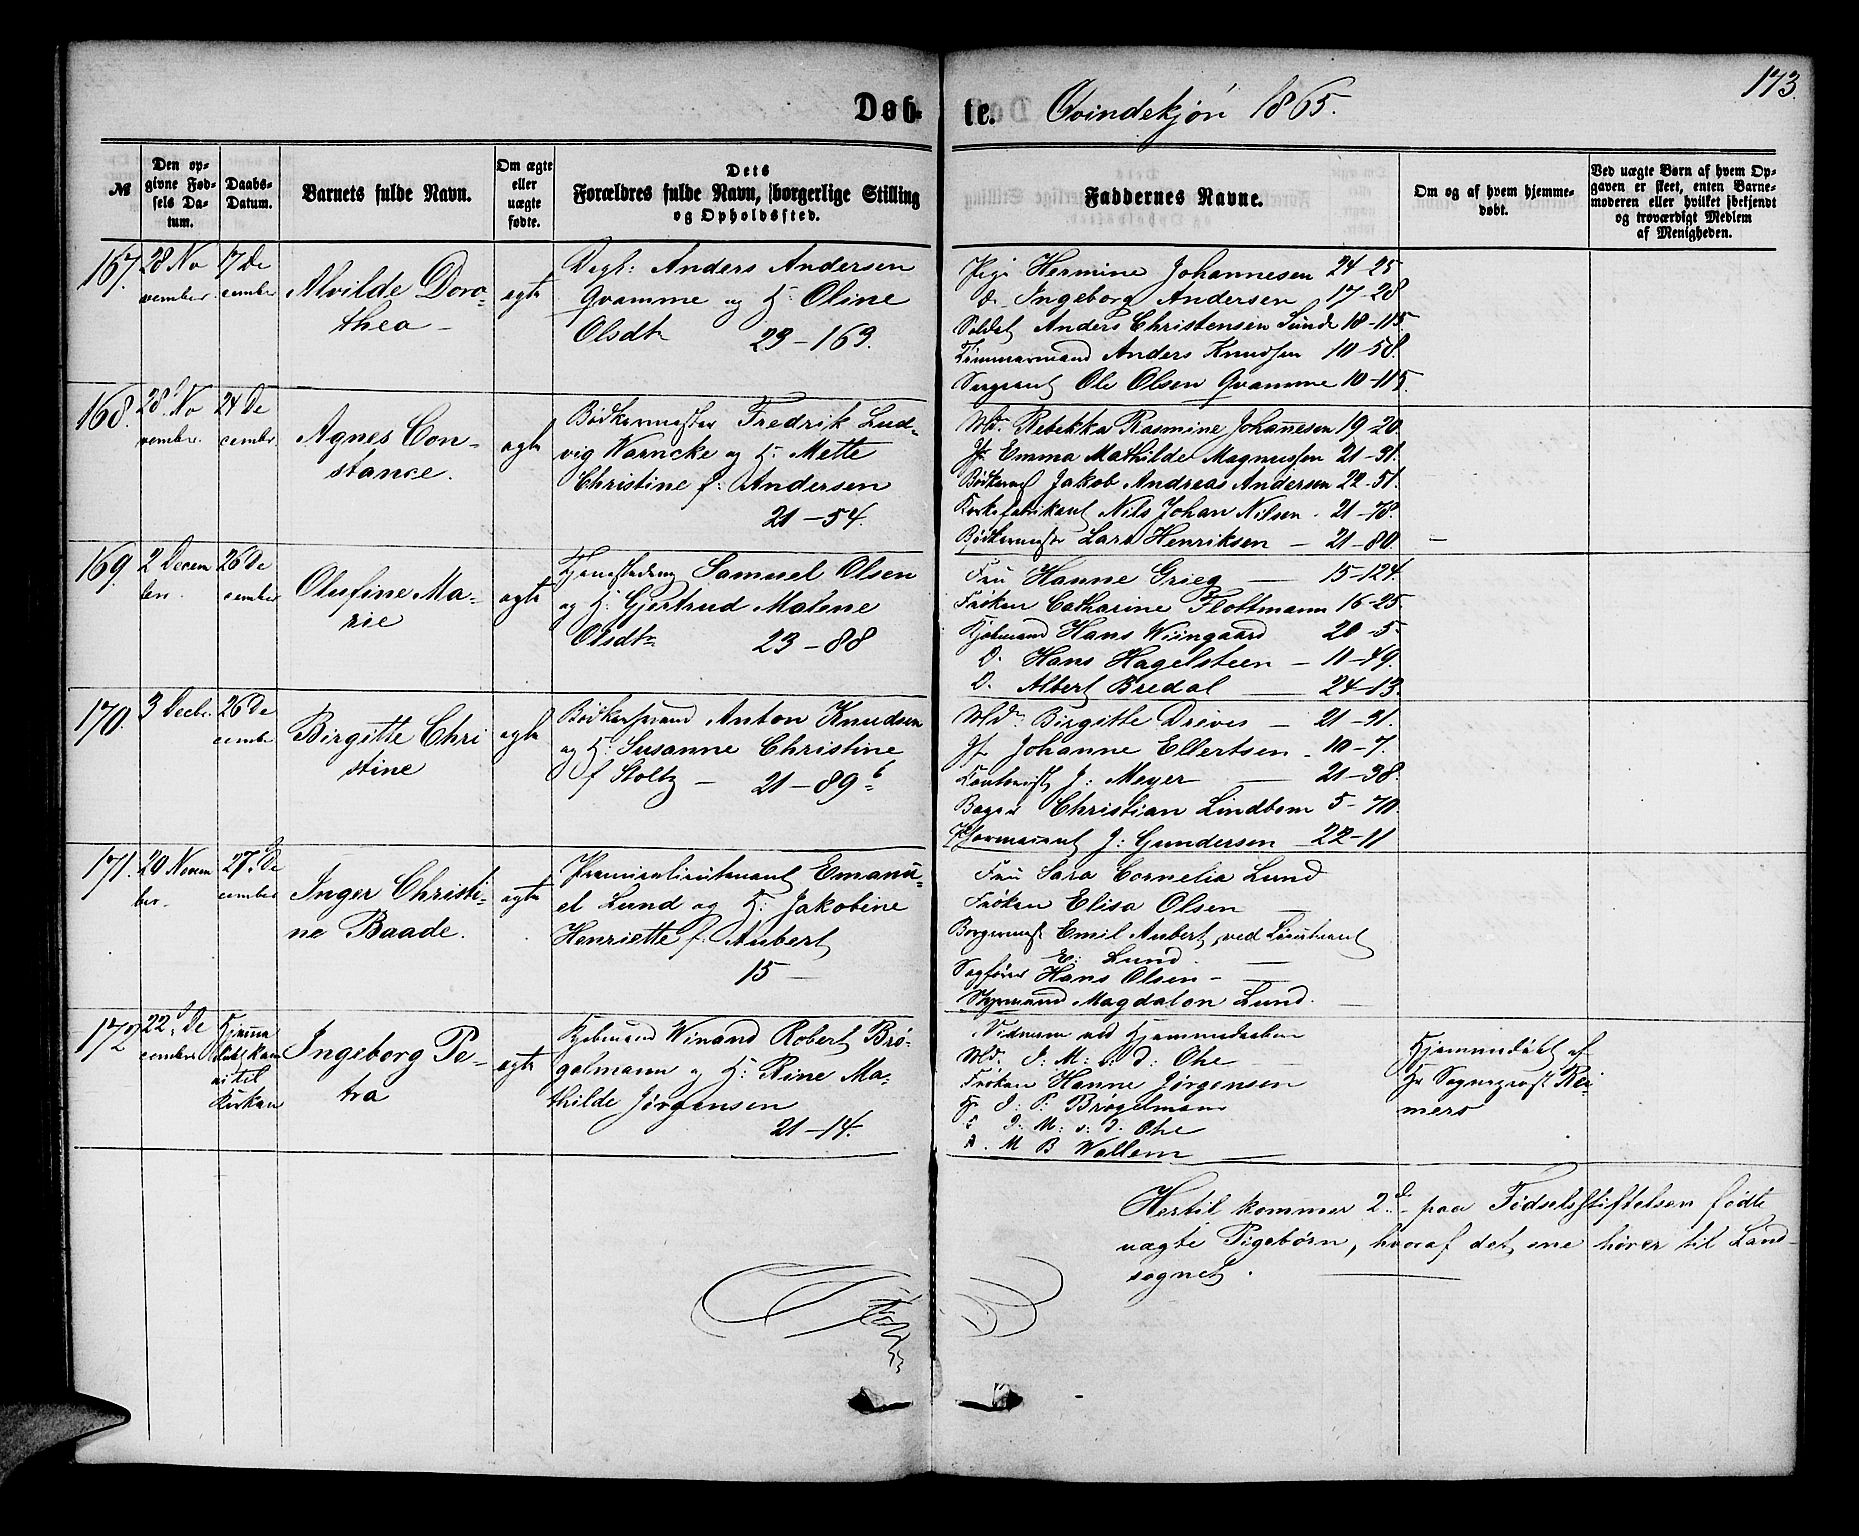 173.
Døb-te. Qvindekjøn 1865.
№
Den op-
givne Fød-
sels Da-
tum.
Daabs-
Datum.
Barnets fulde Navn.
Om ægte
eller
uægte
fødte.
Dets
Forældres fulde Navn, borgerlige Stilling
og Opholdssted.
Faddernes Navne.
Om og af hvem hjemme-
døbt.
Ved uægte Børn af hvem Op-
gaven er skeet, enten Barne-
moderen eller hvilket bekjendt
og troværdigt Medlem
af Menigheden.
167.
28 No
vember
17 De
cember
Alvilde Doro-
thea
ægte
Anders Andersen
Qvamme og H: Oline
Olsdtr 23-163.
Pige Hermine Johannesen 24-25
do Ingeborg Andersen 17-28
Soldat Anders Christensen Sunde 18-115.
Tømmermand Anders Knudsen 10-58.
Sergeant Ole Olsen Qvamme 10-115.
168.
28 No
vember.
24 De
cember
Agnes Con-
stance.
ægte
Bødkermester Fredrik Lud-
vig Warncke og H: Mette
Christine f: Andersen
21-54.
Md: Rebekka Rasmine Johannesen 19-20
Jf: Emma Mathilde Magnussen 21-31.
Jakob Andreas Andersen 22-51.
Korkefabrikant Nils Johan Nilsen 21-78.
Bødkermester Lars Henriksen - 21-80.
169.
2 Decem
ber.
26 De
cember
Olufine Ma-
rie
ægte
Samuel Olsen
og H: Gjertrud Malene
Olsdtr 23-88
Fru Hanne Grieg 15-124.
Frøken Catharine Flottmann 16-25
Kjøbmand Hans Wiingaard 20-5-
D. Hans Hagelsteen - 11-49.
D. Albert Bredal 24-13.
170.
3 Decbr.
26 De
cember
Birgitte Chri
stine
ægte
Bødkersvend Anton Knudsen
og H: Susanne Christine
f Stoltz - 21-89 b
Md: Birgitte Dreves - 21-31.
Jf Johanne Ellertsen - 10-7.
Kontorist J: Meyer 21-38.
Bager Christian Lindbom 5-70.
J: Gundersen 22-11
171.
20 Novem
ber.
27 De
cember
Inger Christi-
ne Baade.
ægte
Premierlieutenant Emanu-
el Lund og H: Jakobine
Henriette f: Aubert
15 -
Fru Sara Cornelia Lund
Frøken Elisa Olsen
Borgermst Emil Aubert, ved Lieutenant
E: Lund.
Sagfører Hans Olsen -
Styrmand Magdalon Lund.
172
22 De
cember
Hjemme
døbt kom
ei til
Kirken
Ingeborg Pe-
tra
ægte
Kjøbmand Winand Robert Brø-
gelmann og H: Rine Ma-
thilde Jørgensen
21-14.
Vidnerne ved Hjemmedaaben
Md. J: M: v: d: Ohe
Frøken Hanne Jørgensen
Hr J: P: Brøgelmann
D: M: v: d: Ohe
M B Wallem
Hjemmedøbt af
Hr Sogneprest Rei-
mers
Hertil kommer 2de paa Fødselsstiftelsen fødte
uægte Pigebørn, hvoraf det ene hører til Land-
sognet.